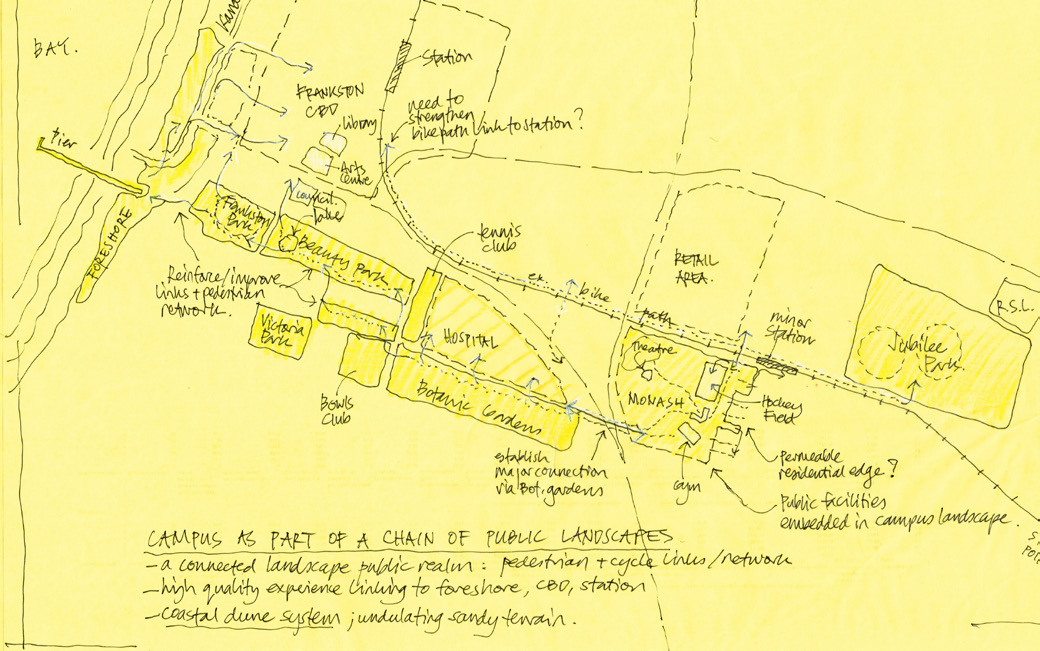 BAY.
Kan
Station
FRANKSTON
CBD
library
need to
strengthen
bikepath link to station?
Arts
Centre
Pier
council.
lake
Frankston
Park
Beauty Park
FORESHORE
tennis
club
Reinforce/improve
links + pedestrian
network.
Victoria
Park
HOSPITAL
Bowls
Club
Botanic Gardens
ex.
bike
path
RETAIL
AREA.
minor
Station
R.S.L.
Jubilee
Park.
Theatre
MONASH
Hockey
Field
Gym
establish
major connection
via Bot. gardens
permeable
residential edge?
Public facilities
embedded in campus landscape.
CAMPUS AS PART OF A CHAIN OF PUBLIC LANDSCAPES
- a connected landscape public realm : pedestrian + cycle links/network
- high quality experience linking to foreshore, CBD, station
- coastal dune system ; undulating sandy terrain.